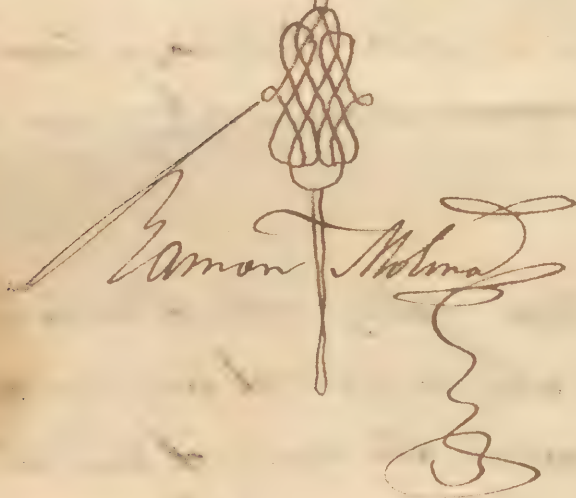 Ramon Molina